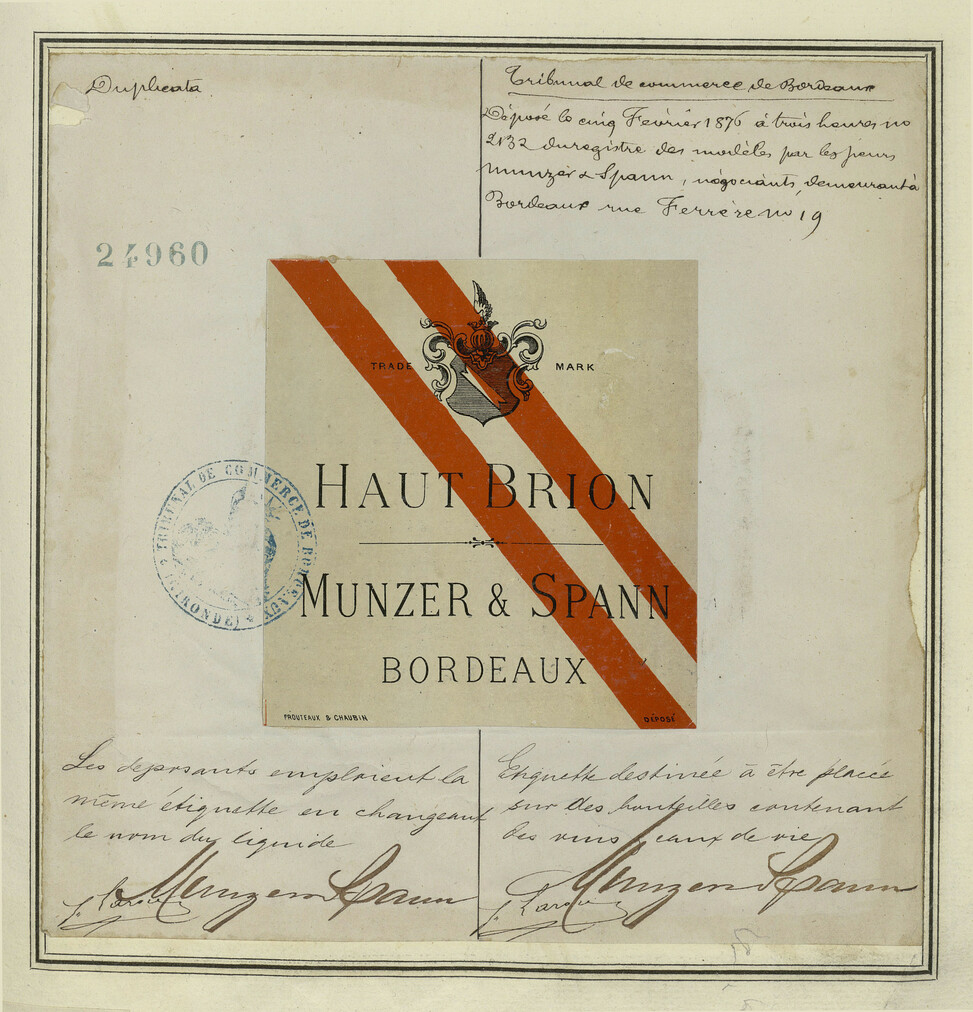 Duplicata
Tribunal de commerce de Bordeaux
Déposé le cinq Février 1876 à trois heures no
2132 du registre des modèles par les sieurs
Munzer & Spann, négociants, demeurant à
Bordeaux rue Ferrère no 19
24960
TRADE MARK
HAUT BRION
MUNZER & SPANN
BORDEAUX
PROUTEAUX & CHAUBIN
DÉPOSÉ
TRIBUNAL DE COMMERCE DE BORDEAUX
(GIRONDE)
Les déposants emploient la
même étiquette en changeant
le nom du liquide
Munzer Spann
Etiquette destinée à être placée
sur des bouteilles contenant
des vins, eaux de vie
Munzer Spann